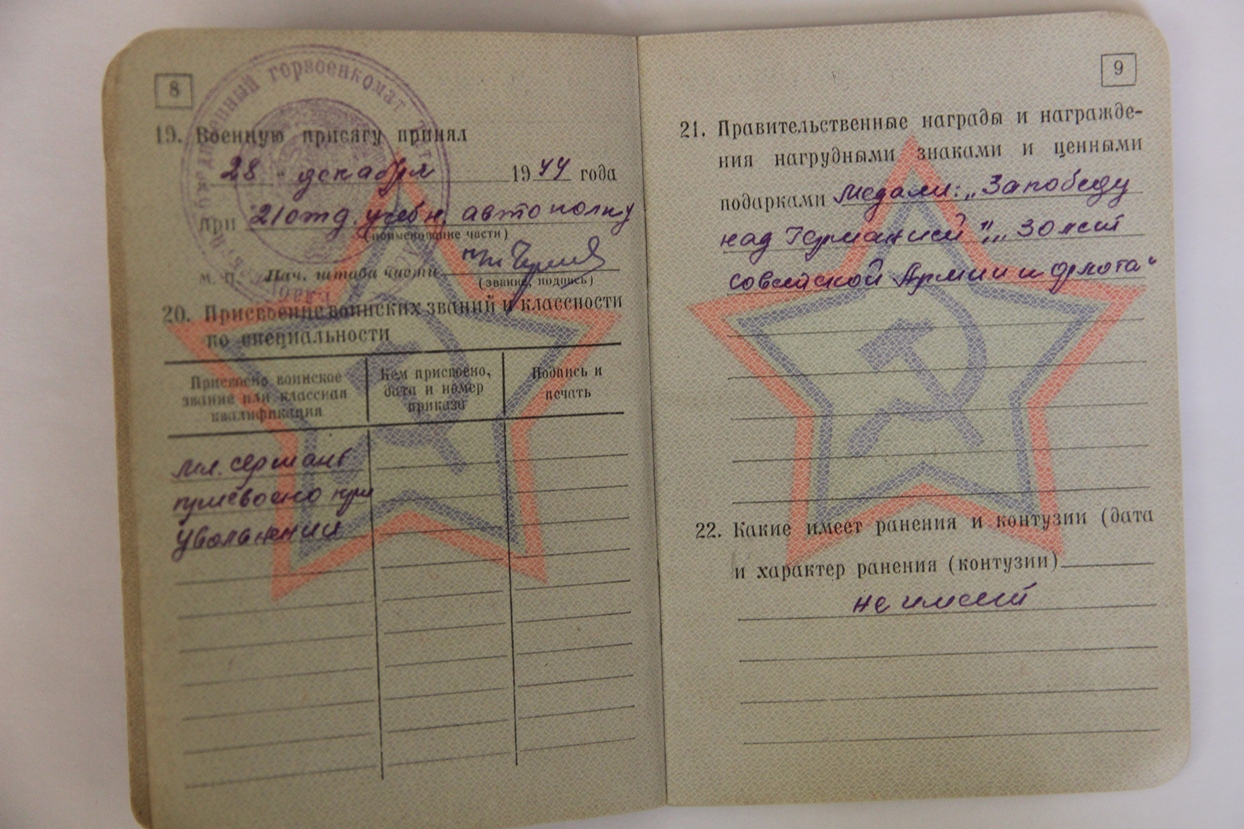 8
19. Военную присягу принял
28 декабря 1944 года
при 21 отд. учебн. автополку
(наименование части)
М. П. Нач. штаба части
(звание, подпись)
20. Присвоение воинских званий и классности
по специальности
Присвоено воинское звание или классная квалификация
Кем присвоено, дата и номер приказа
Подпись и печать
мл. сержант
присвоено при
увольнении
9
21. Правительственные награды и награжде-
ния нагрудными знаками и ценными
подарками Медали: „За победу
над Германией", „30 лет
советской Армии и флота"
22. Какие имеет ранения и контузии (дата
и характер ранения (контузии)
не имеет